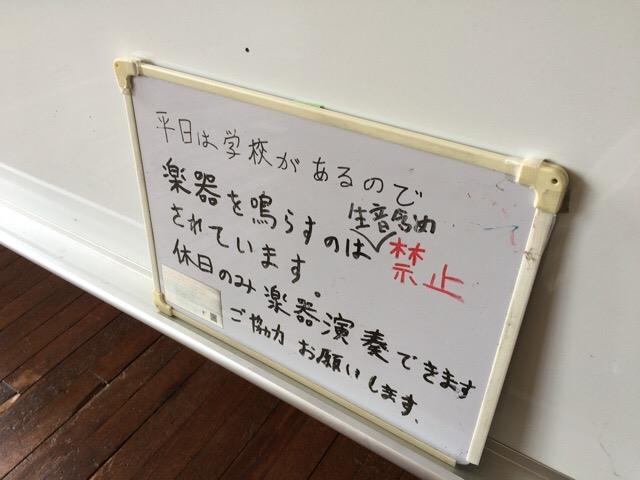 平日は学校があるので
楽器を鳴らすのは生音含め禁止
されています。
休日のみ楽器演奏できます
ご協力お願いします。